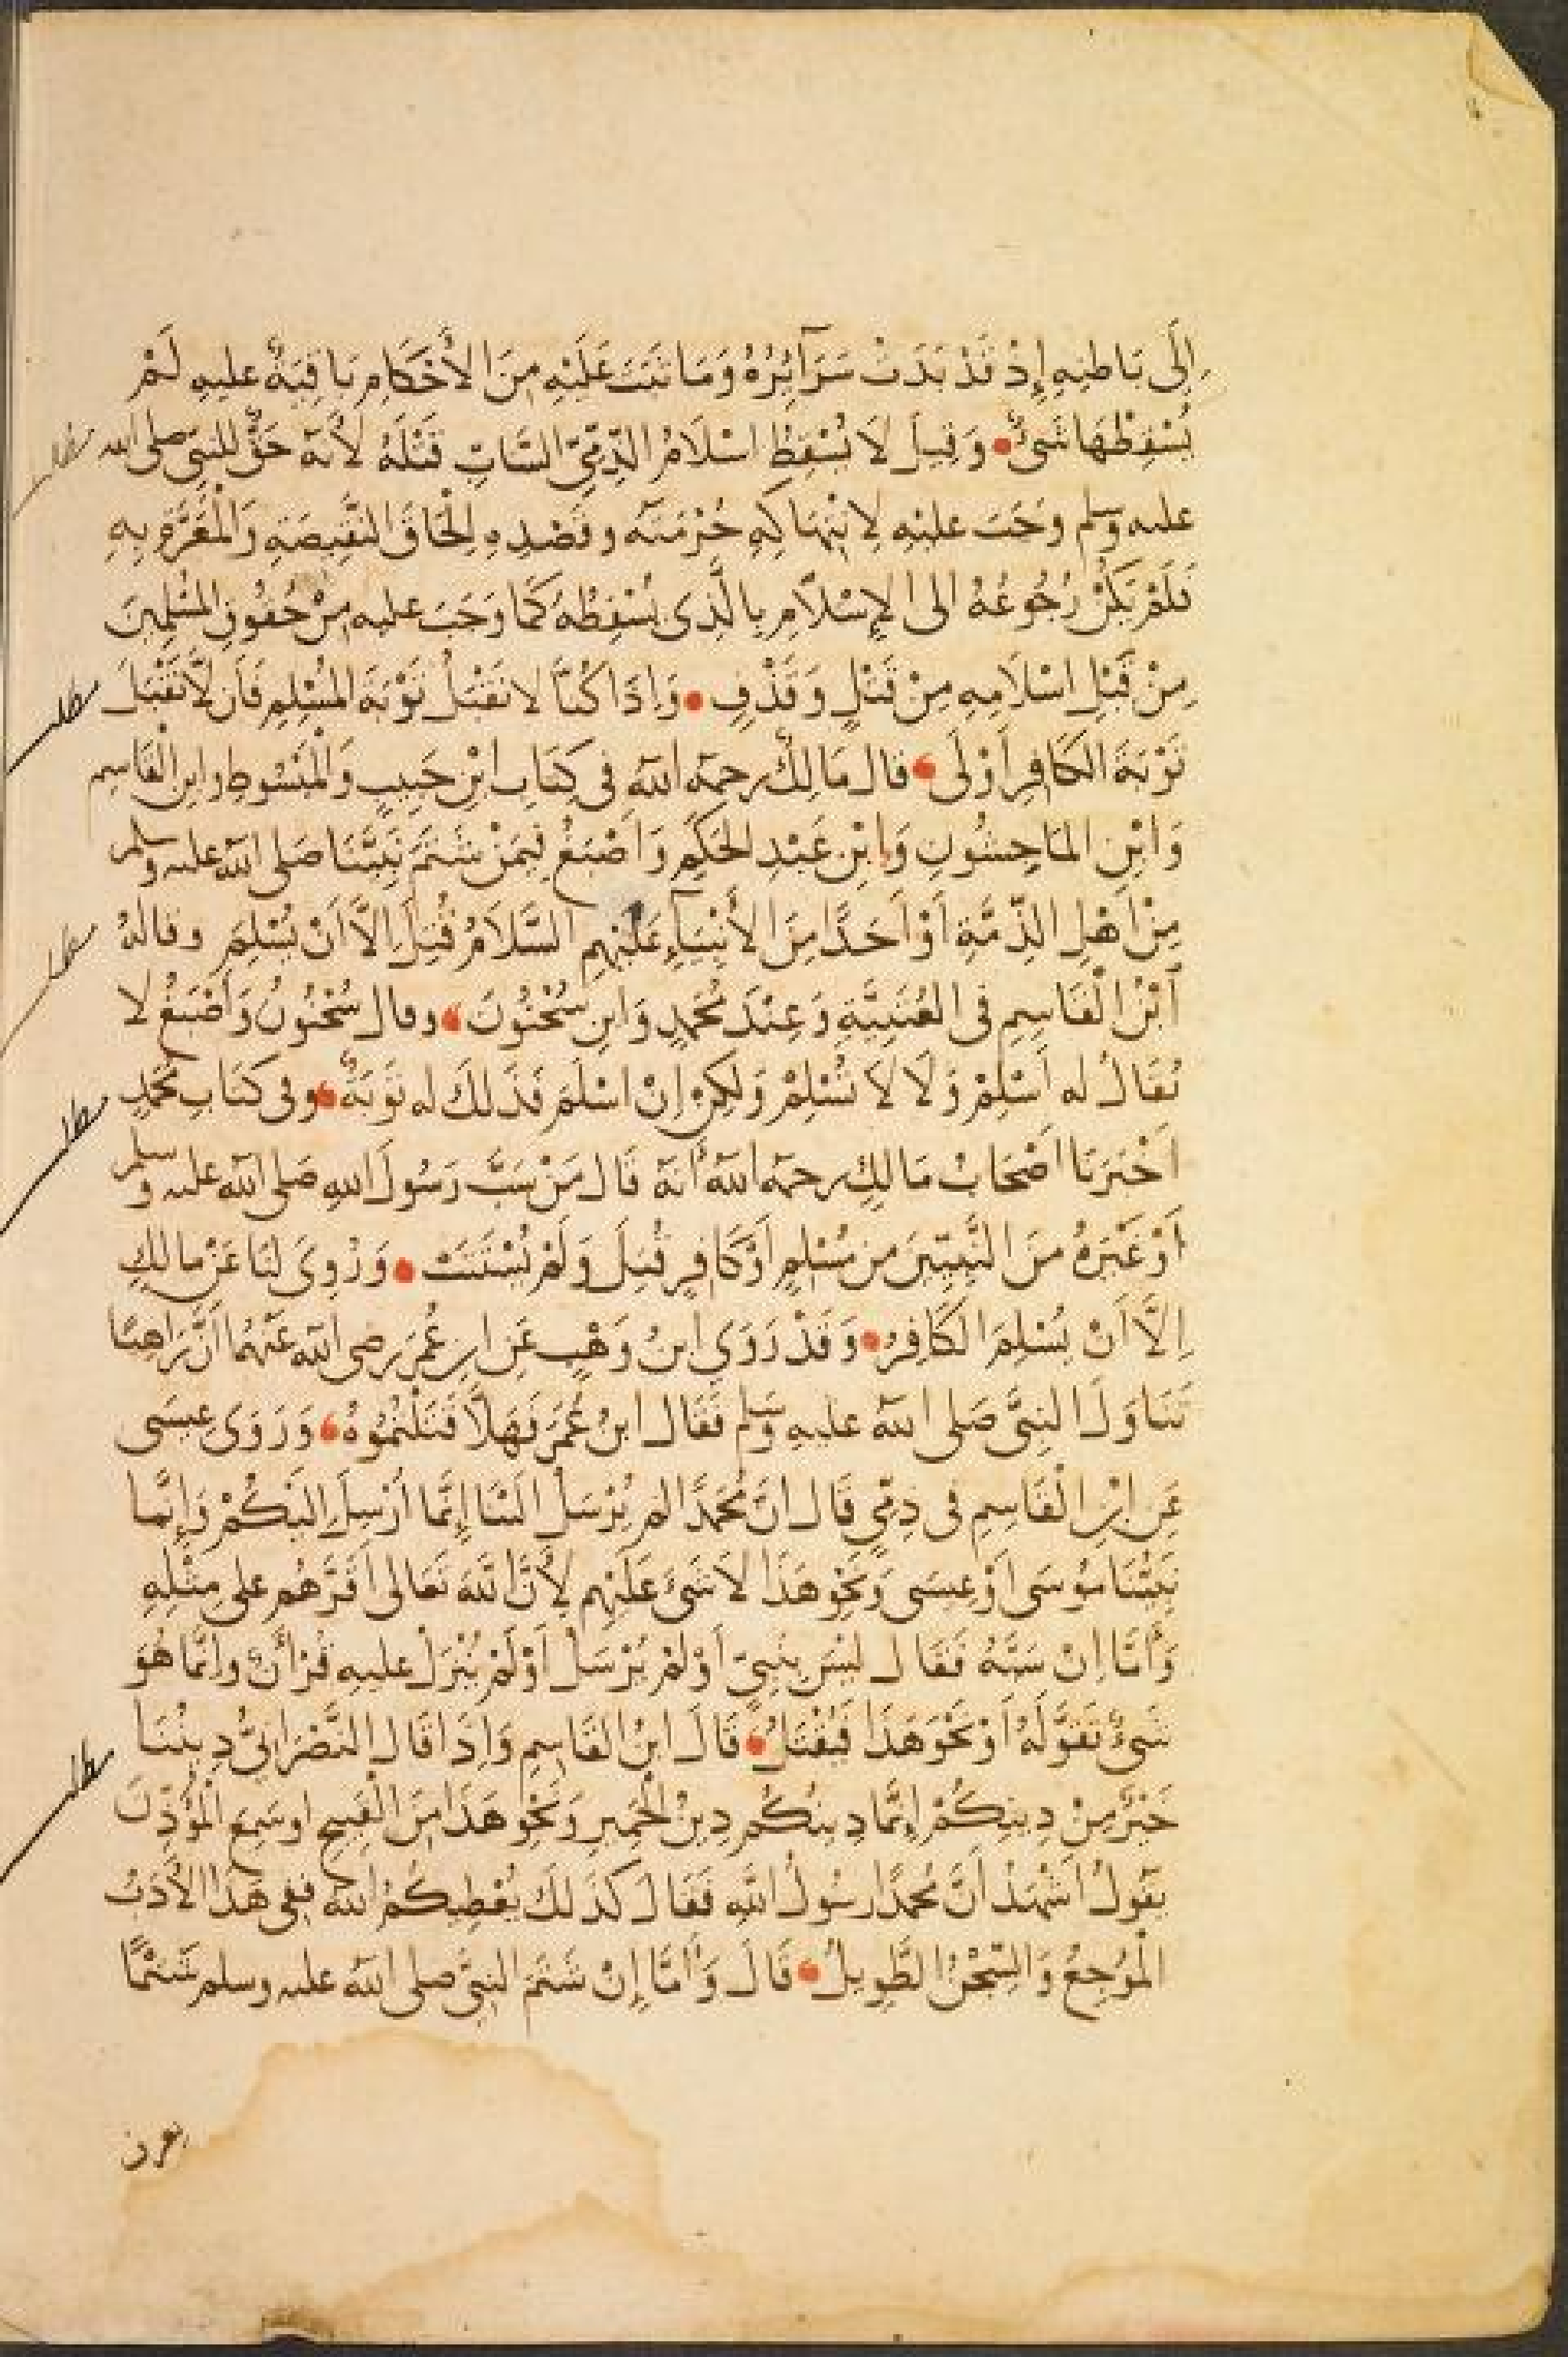 إِلَى بَاطِنِهِ إِذْ قَدْ بَدَتْ سَرَآئِرُهُ وَمَا ثَبَتَ عَلَيْهِ مِنَ الأَحْكَامِ بَاقِيَةٌ عليهِ لَمْ
يُسْقِطْهَا شَىْءٌ • وَقِيلَ لَا يُسْقِطُ اسْلَامُ الذِّمِّىِّ السَّابِّ قَتْلَهُ لأَنَّهُ حَقٌّ للنبىِّ صلى الله
عليه وسلم وَجَبَ عليْهِ لِانْتِهَاكِهِ حُرْمَتَهُ وقَصْدِهِ إِلْحَاقَ النَّقِيصَةِ وَالْمَعَرَّةِ بِهِ
فَلَمْ يَكُنْ رُجُوعُهُ الى الإِسْلَامِ بِالَّذِى يُسْقِطُهُ كَمَا وَجَبَ عليهِ مِنْ حُقُوقِ المُسْلِمِينَ
مِنْ قَبْلِ اسْلَامِهِ مِنْ قَتْلٍ وَقَذْفٍ • وَاِذَا كُنَّا لا نَقْبَلُ تَوْبَةَ المُسْلِمِ فَأَن لَّا نَقْبَلَ
تَوْبَةَ الكَافِرِ أَوْلَى • قال مَالِكٌ رحمَه اللهُ فى كِتَابِ ابْنِ حَبِيبٍ وَالْمَبْسُوطِ وابنِ الْقَاسِمِ
وَابْنِ المَاجِشُونِ وَابْنِ عَبْدِ الحَكَمِ وَاَصْبَغُ فِيمَنْ شَتَمَ نَبِيَّنَا صَلى الله عليه وسلم
مِنْ اَهْلِ الذِّمَّةِ أَوْ اَحَدًا مِنَ الأَنْبِيَآءِ عَلَيْهِمِ السَّلَامُ قُتِلَ اِلاَّ اَنْ يُسْلِمَ وقالهُ
ابْنُ الْقَاسِمِ فى العُتْبِيَّةِ وَعِنْدَ مُحَمَّدٍ وَابنِ سُحْنُونَ • وقال سُحْنُونُ وَأَصْبَغُ لا
يُقَالُ له اَسْلِمْ وَلَا لَا تُسْلِمْ وَلَكِنْ اِنْ اسْلَمَ فَذَلكَ له تَوْبَةٌ • وفى كتَابِ مُحَمَّدٍ
اَخْبَرَنَا اَصْحَابُ مَالِكٍ رحمَه اللهُ أَنَّهُ قَال مَنْ سَبَّ رَسُولَ اللهِ صَلى الله عليه وسلم
أَوْ غَيْرَهُ مِنَ النَّبِيِّينَ مِن مُسْلِمٍ اَوْ كَافِرٍ قُتِلَ وَلَمْ يُسْتَتَبْ • وَرُوِىَ لنَا عَنْ مالكٍ
اِلاَّ اَنْ يُسْلِمَ الْكَافِرُ • وَقَدْ رَوَى ابنُ وَهْبٍ عَنِ ابنِ عُمَرَ رضى الله عَنْهُمَا أَنَّ رَاهِبًا
تَنَاوَلَ النبِىَّ صَلى اللهُ عليهِ وَسَلم فَقَال ابنُ عُمَرَ فَهَلاَّ قَتَلْتُمُوهُ • وَرَوَى عِيسَى
عَنِ ابْنِ الْقَاسِمِ فى ذِمِّىٍّ قَال انَّ مُحَمَّدًا لم يُرْسَلْ الَيْنَا إِنَّمَا أُرْسِلَ الَيْكُمْ وَاِنَّمَا
نَبِيُّنَا مُوسَى اَوْ عِيسَى وَنَحْوِ هَذَا لَا شَىْءَ عَلَيْهِم لأَنَّ اللهَ تَعَالى اَقَرَّهُم على مِثْلِهِ
وَأَمَّا اِنْ سَبَّهُ فَقَال ليْسَ بِنَبِىٍّ اَوْ لمْ يُرْسَلْ اَوْ لَمْ يُنْزَلْ عليهِ قُرْأنٌ وانَّمَا هُوَ
شَىْءٌ تَقَوَّلَهُ أَوْ نَحْوَ هَذَا فَيُقْتَلُ • قَالَ ابنُ القَاسِمِ وَاِذَا قَال النَّصْرَانِىُّ دِينُنَا
خَيْرٌ مِنْ دِينِكُمْ اِنَّمَا دِينُكُم دِينُ الْحَمِيرِ وَنَحْوِ هَذَا مِنَ الْقَبِيحِ او سَمِعَ الْمُؤَذِّنَ
يقولُ اَشْهَدُ اَنَّ مُحَمَّدًا رسُولُ اللهِ فَقَالَ كذَلكَ يُعْطِيكُمُ اللهُ ففِى هَذَا الأَدَبُ
الْمُوجِعُ وَالسِّجْنُ الطَّوِيلُ • قَالَ وَأَمَّا إِنْ شَتَمَ النبِىَّ صلى اللهُ عليه وسلم شَتْمًا
يعرف
مطلب
مطلب
مطلب
مطلب
مطلب